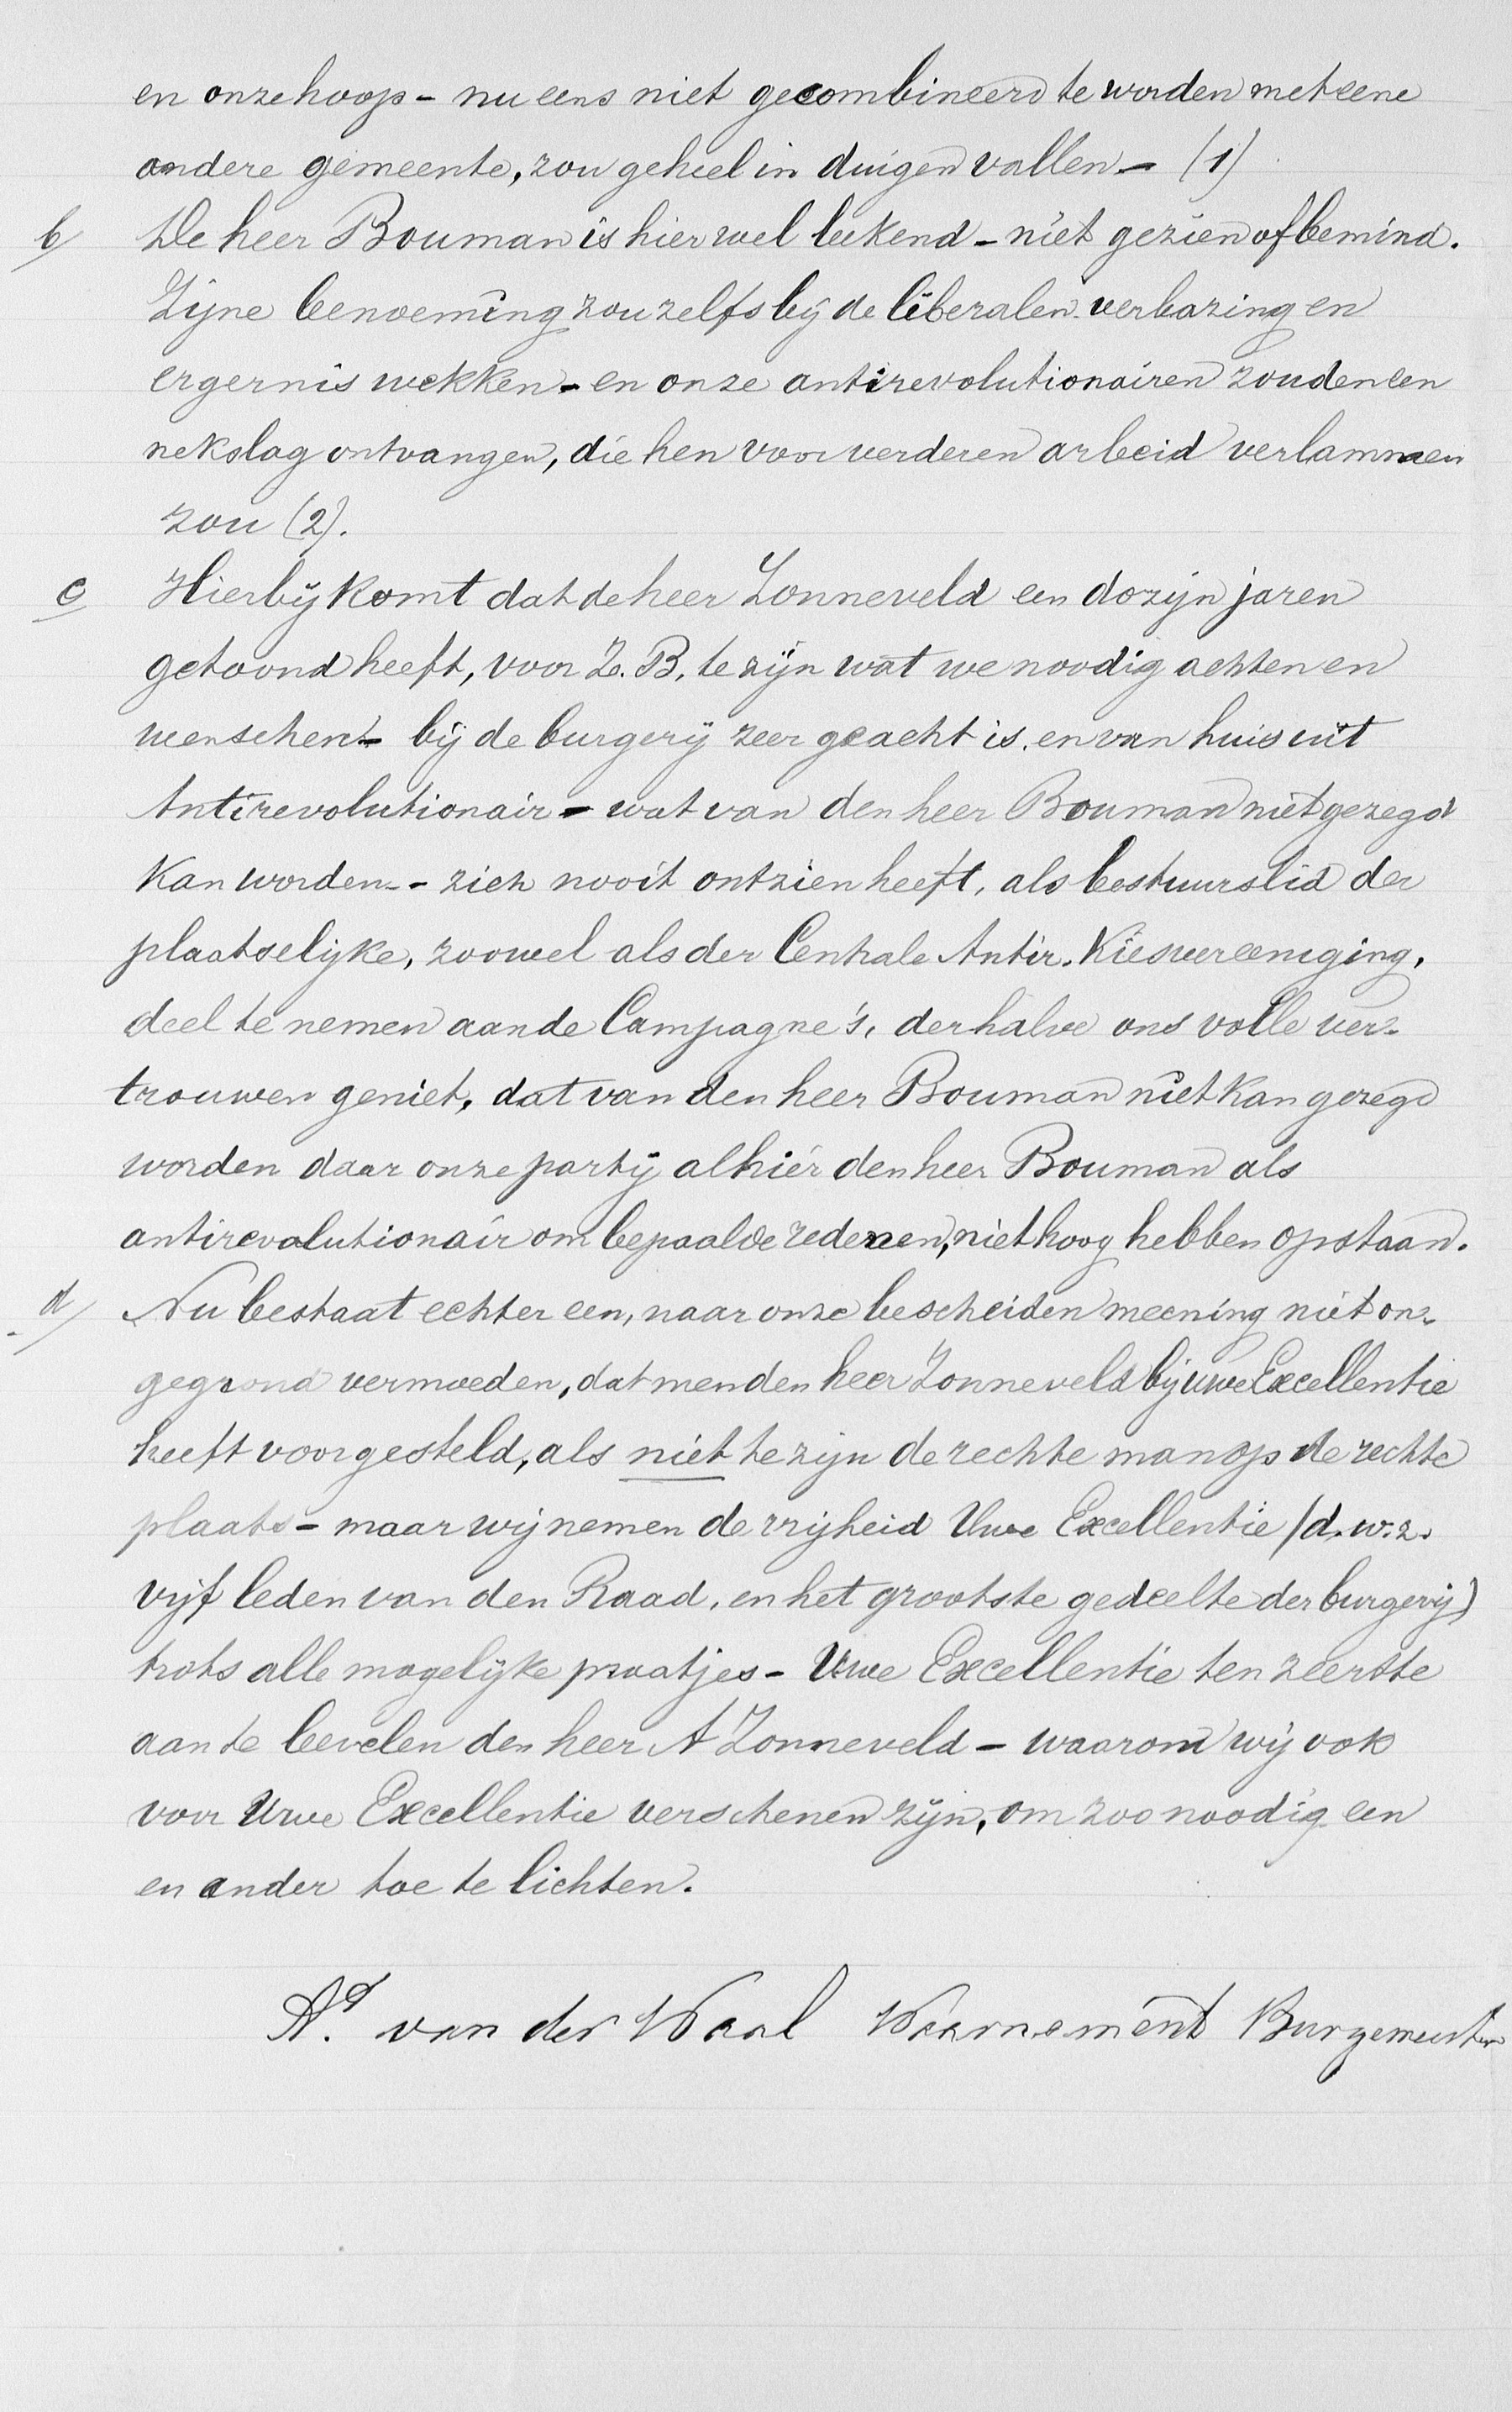 en onze hoop - nu eens niet gecombineerd te worden met eene
andere gemeente, zou geheel in duigen vallen - (1)
b/ De heer Bouman is hier wel bekend - niet gezien of bemind.
Zijne benoeming zou zelfs bij de liberalen verbazing en
ergernis wekken - en onze antirevolutionairen zouden een
nekslag ontvangen, die hen voor verderen arbeid verlammen
zou (2).
c/ Hierbij komt dat de heer Zonneveld een dozijn jaren
getoond heeft, voor Z. B. te zijn wat we noodig achten en
wenschen - bij de burgerij zeer geacht is, en van huis uit
Antirevolutionair - wat van den heer Bouman niet gezegd
kan worden - - zich nooit ontzien heeft, als bestuurslid der
plaatselijke, zoowel als der Centrale Antir. Kiesvereeniging,
deel te nemen aan de Campagne's, derhalve ons volle ver-
trouwen geniet, dat van den heer Bouman niet kan gezegd
worden daar onze partij alhier den heer Bouman als
antirevolutionair om bepaalde redenen, niet hoog hebben opstaan.
d/ Nu bestaat echter een, naar onze bescheiden meening niet on-
gegrond vermoeden, dat men den heer Zonneveld bij uwe Excellentie
heeft voorgesteld, als niet te zijn de rechte man op de rechte
plaats - maar wij nemen de vrijheid Uwe Excellentie (d.w.z.
vijf leden van den Raad, en het grootste gedeelte der burgerij)
trots alle mogelijke praatjes - Uwe Excellentie ten zeerste
aan te bevelen den heer A Zonneveld - waarom wij ook
voor Uwe Excellentie verschenen zijn, om zoo noodig een
en ander toe te lichten.
Ad. van der Waal Waarnement Burgemeester